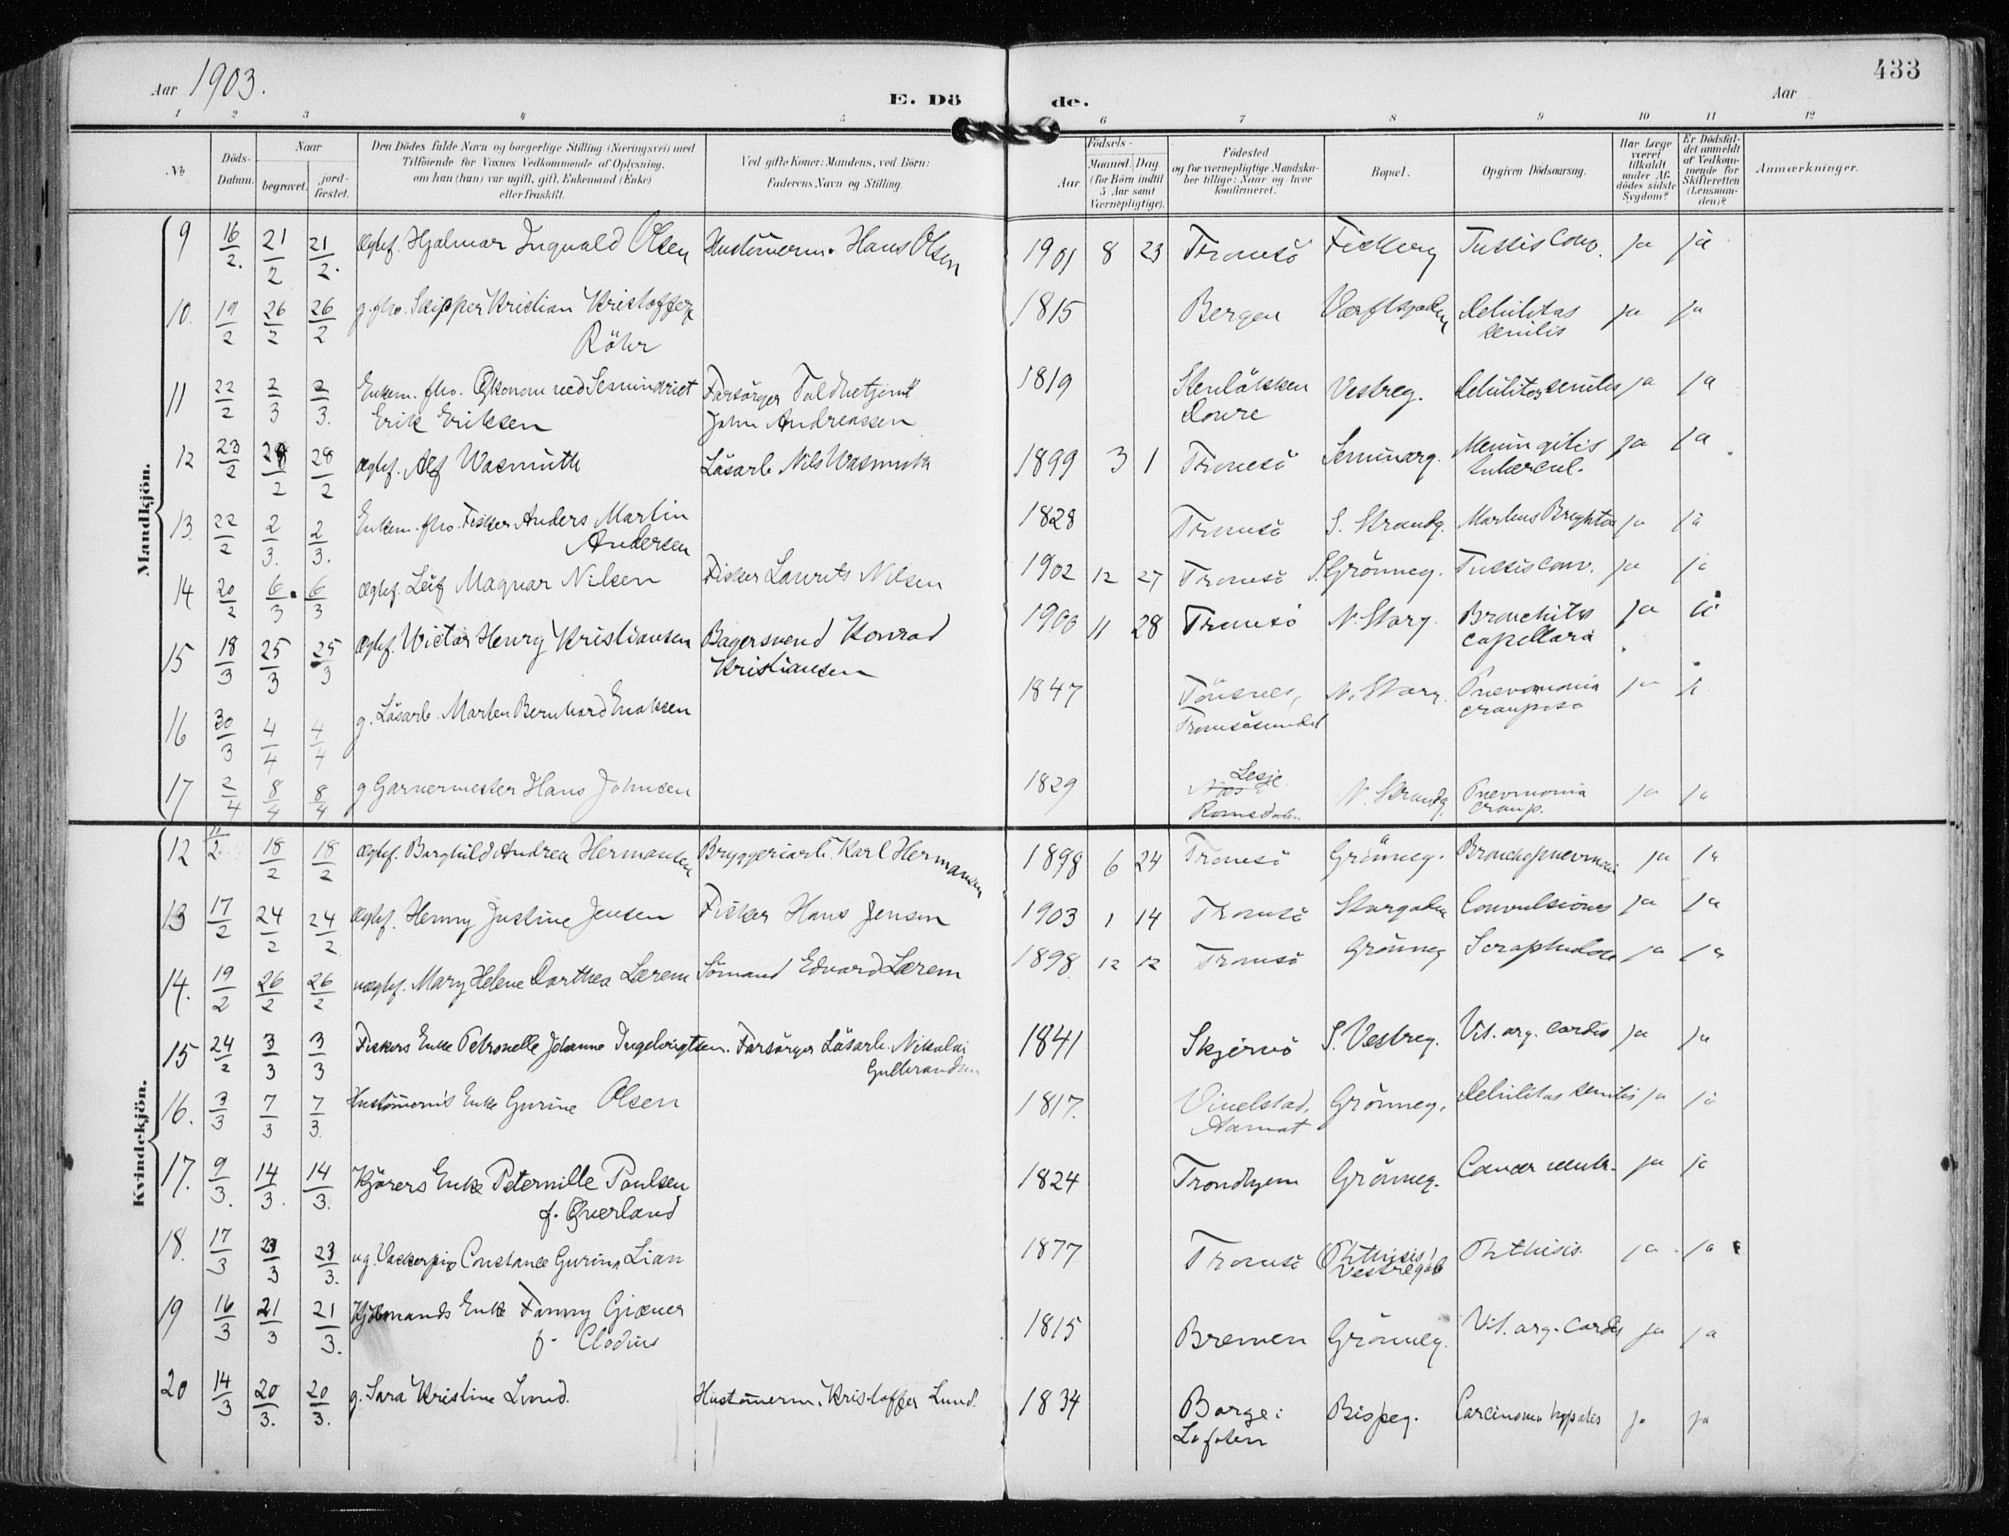 433
Aar 1903.
E. Dö de.
Aar
1 2 3 4 5 6 7 8 9 10 11 12
No.
Döds-Datum.
Naar
begravet.
jordfæstet.
Den Dödes fulde Navn og borgerlige Stilling (Næringsvei) med
Tilföiende for Voxnes Vedkommende af Oplysning,
om han (hun) var ugift, gift, Enkemand (Enke)
eller fraskilt.
Ved gifte Koner: Mandens, ved Börn:
Faderens Navn og Stilling.
Födsels-
Aar
Maaned. Dag
(for Börn indtil
5 Aar samt
Værnepligtige).
Födested
og for værnepligtige Mandskaber tillige: Naar og hvor
konfirmeret.
Bopæl.
Opgiven Dödsaarsag.
Har Læge
været
tilkaldt
under Afdödes sidste
Sygdom?
Er Dödsfaldet anmeldt
af Vedkommende for
Skifteretten
(Lensmanden)?
Anmærkninger.
Mandkjön.
9 16/2. 21/2 21/2. ægtef. Hjalmar Ingvald Olsen Hustömerm. Hans Olsen 1901 8 23 Tromsö Fiskerg Tussis conv. ja ja
10. 19/2 26/2 26/2 g. fhv. Skipper Kristian Kristoffer 1815 Bergen Værftsgaden Debilitas ja ja
Röhr senilis
11 22/2 2/3 2/3. Enkem. fhv. Økonom ved Seminariet Forsörger Toldbetjent 1819 Stenlökken Vestreg. Debilitas senilis ja ja
Erik Eriksen John Andreassen Dovre
12 23/2 28/2 28/2 ægtef. Alf Wasmuth Lösarb Nils Wasmuth 1899 3 1 Tromsö Seminarg. Meningitis ja ja
tubercul.
13. 22/2 2/3. 2/3. Enkem. fhv. Fisker Anders Martin 1828 Tromsö S. Strandg. Morbus Brightii ja ja
Andersen
14 20/2 6/3 6/3 ægtef. Leif Magnar Nilsen Fisker Laurits Nilsen 1902 12 27 Tromsö S. Grönneg. Tussis conv. ja ja
15 18/3 25/3 25/3 ægtef. Victor Henry Kristiansen Bagersvend Konrad 1900 11 28 Tromsö N. Storg Bronchitis ja ja
Kristiansen capillaris
16 30/3 4/4 4/4 g. Lösarb. Morten Bernhard Enoksen 1847 Tönsnes, N. Storg. Pnevmonia ja ja
Tromsösundet crouposa
17 2/4 8/4 8/4 g Garvermester Hans Johnsen 1829 Lesje N. Strandg. Pnevmonia ja ja
Romsdalen croup.
Kvindekjön.
12 11/2. 18/2 18/2 ægtef. Borghild Andrea Hermansen Bryggeriarb. Karl Hermansen 1898 6 24 Tromsö Grönneg. Bronchopnevmoni ja ja
13 17/2 24/2 24/2 ægtef. Henny Justine Jensen Fisker Hans Jensen 1903 1 14 Tromsö Storgaden Convulsiones ja ja
14. 19/2 26/2 26/2 uægtef. Mary Helene Dorthea Lærem Sömand Edvard Lærem 1898 12 12 Tromsö Grönneg Scrophulose ja ja
15 24/2 3/3 3/3 Fiskers Enke Petronelle Johanne Ingebrigtsen. Forsörger Lösarb. Nikolai 1841 Skjervö S. Vestreg. Vit. org. cordis ja ja
Gulbrandsen
16. 3/3 7/3 7/3. Hustömerm's Enke Gurine Olsen 1817. Vinelstad, Grönneg. Debilitas senilis ja ja
Aamot
17. 9/3. 14/3. 14/3. Kjörers Enke Peternille Poulsen 1824 Trondhjem Grönneg. Cancer ja ja
f. Øverland
18. 17/3 23/3 23/3. ug. Vaskerpig Constance Gurina Lian 1877 Tromsö (Phthisis) Phthisis. ja ja
Vestregade
19 16/3 21/3 21/3. Kjöbmands Enke Fanny Gixner 1815 Bremen Grönneg. Vit. org. cordis ja ja
f. Clodius
20 14/3 20/3. 20/3. g. Sara Kristine Lund. Hustömerm. Kristoffer Lund. 1834 Borge i Bispeg. Carcinoma hepatis ja ja
Lofoten